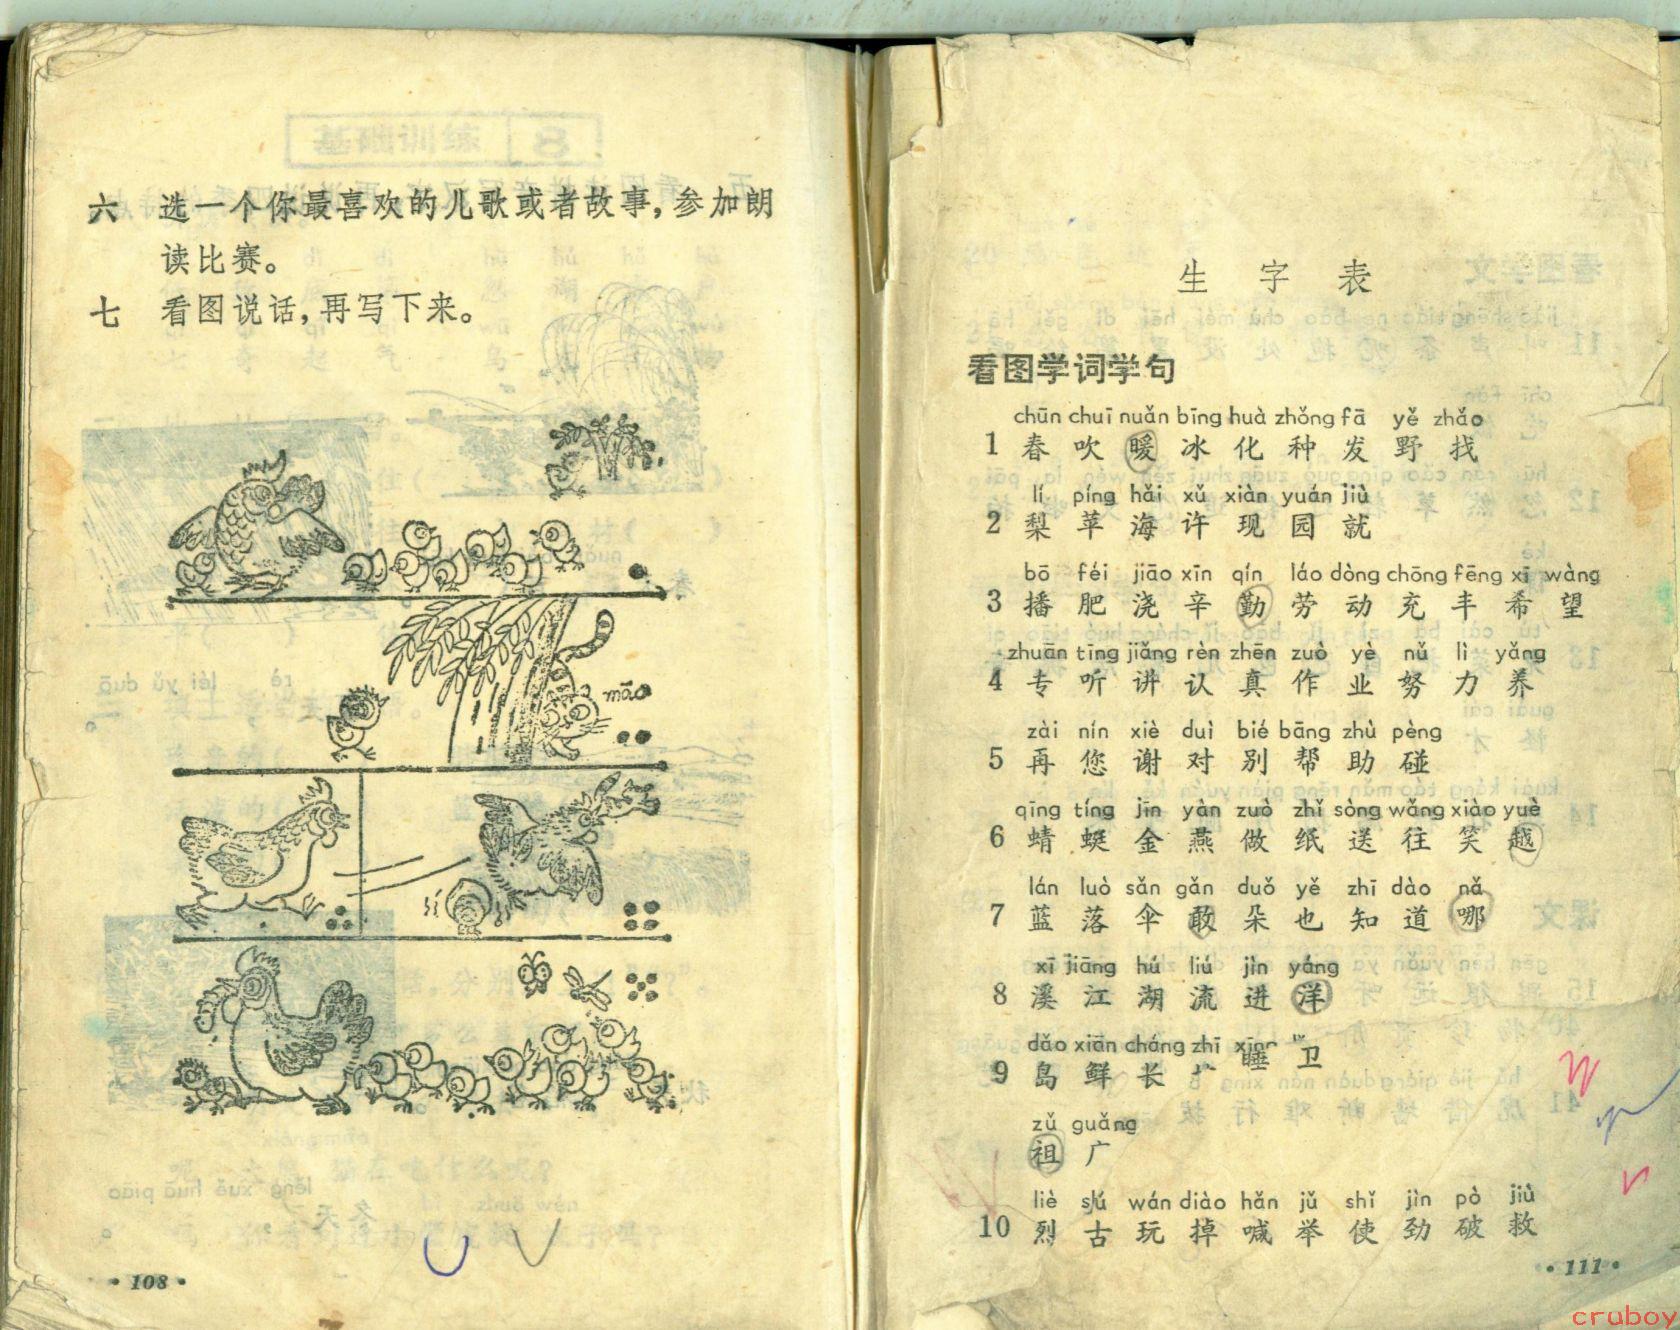 六 选一个你最喜欢的儿歌或者故事，参加朗
读比赛。
七 看图说话，再写下来。
māo
·108·
生字表
看图学词学句
chūn chuī nuǎn bīng huà zhǒng fā yě zhǎo
1 春 吹 暖 冰 化 种 发 野 找
lí píng hǎi xǔ xiàn yuán jiù
2 梨 苹 海 许 现 园 就
bō féi jiāo xīn qín láo dòng chōng fēng xī wàng
3 播 肥 浇 辛 勤 劳 动 充 丰 希 望
zhuān tīng jiǎng rèn zhēn zuò yè nǔ lì yǎng
4 专 听 讲 认 真 作 业 努 力 养
zài nín xiè duì bié bāng zhù pèng
5 再 您 谢 对 别 帮 助 碰
qīng tíng jīn yàn zuò zhǐ sòng wǎng xiào yuè
6 蜻 蜓 金 燕 做 纸 送 往 笑 越
lán luò sǎn gǎn duǒ yě zhī dào nǎ
7 蓝 落 伞 敢 朵 也 知 道 哪
xī jiāng hú liú jìn yáng
8 溪 江 湖 流 进 洋
dǎo xiān cháng zhī
9 岛 鲜 长 睡 卫
zǔ guǎng
祖 广
liè gǔ wán diào hǎn jǔ shǐ jìn pò jiù
10 烈 古 玩 掉 喊 举 使 劲 破 救
·111·
cruboy